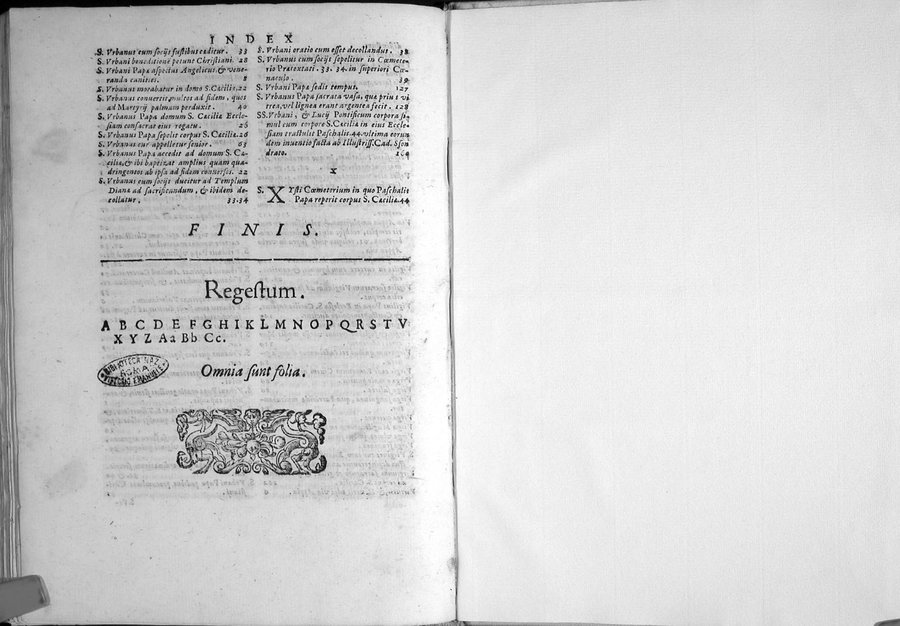 INDEX
S. Vrbanus cum socijs fustibus cæditur. 33
S. Vrbani benedictionē petunt Christiani. 28
S. Vrbani Papa aspectus Angelicus, & vene-
randa canities. 8
S. Vrbanus morabatur in domo S. Cæcilia. 22
S. Vrbanus conuertit multos ad fidem, quos
ad Martyrij palmam perduxit. 40
S. Vrbanus Papa domum S. Cæcilia Eccle-
siam consacrat eius rogatu. 26
S. Vrbanus Papa sepelit corpus S. Cæcilia. 26
S. Vrbanus cur appelletur senior. 83
S. Vrbanus Papa accedit ad domum S. Cæ-
cilia, & ibi baptizat amplius quam qua-
dringentos ab ipsa ad fidem conuersos. 22
S. Vrbanus cum socijs ducitur ad Templum
Diana ad sacrificandum, & ibidem de-
collatur. 33.34
S. Vrbani oratio cum esset decollandus. 38
S. Vrbanus cum socijs sepelitur in Cœmete-
rio Prætextati. 33. 34. in superiori Cœ-
naculo. 39
S. Vrbani Papa sedis tempus. 127
S. Vrbanus Papa sacrata vasa, quæ prius vi
trea, vel lignea erant argentea fecit. 128
SS. Vrbani, & Lucij Pontificum corpora si-
mul cum corpore S. Cæcilia in eius Eccle-
siam trastulit Paschalis. 44. vltima eorun
dem inuentio facta ab Illustriss. Cad. Sfon
drato. 164
X
S. XYsti Cœmeterium in quo Paschalis
Papa reperit corpus S. Cæcilia. 44
FINIS.
Regestum.
A B C D E F G H I K L M N O P Q R S T V
X Y Z Aa Bb Cc.
BIBLIOTECA NAZ
ROMA
VITTORIO EMANUELE
Omnia sunt folia.